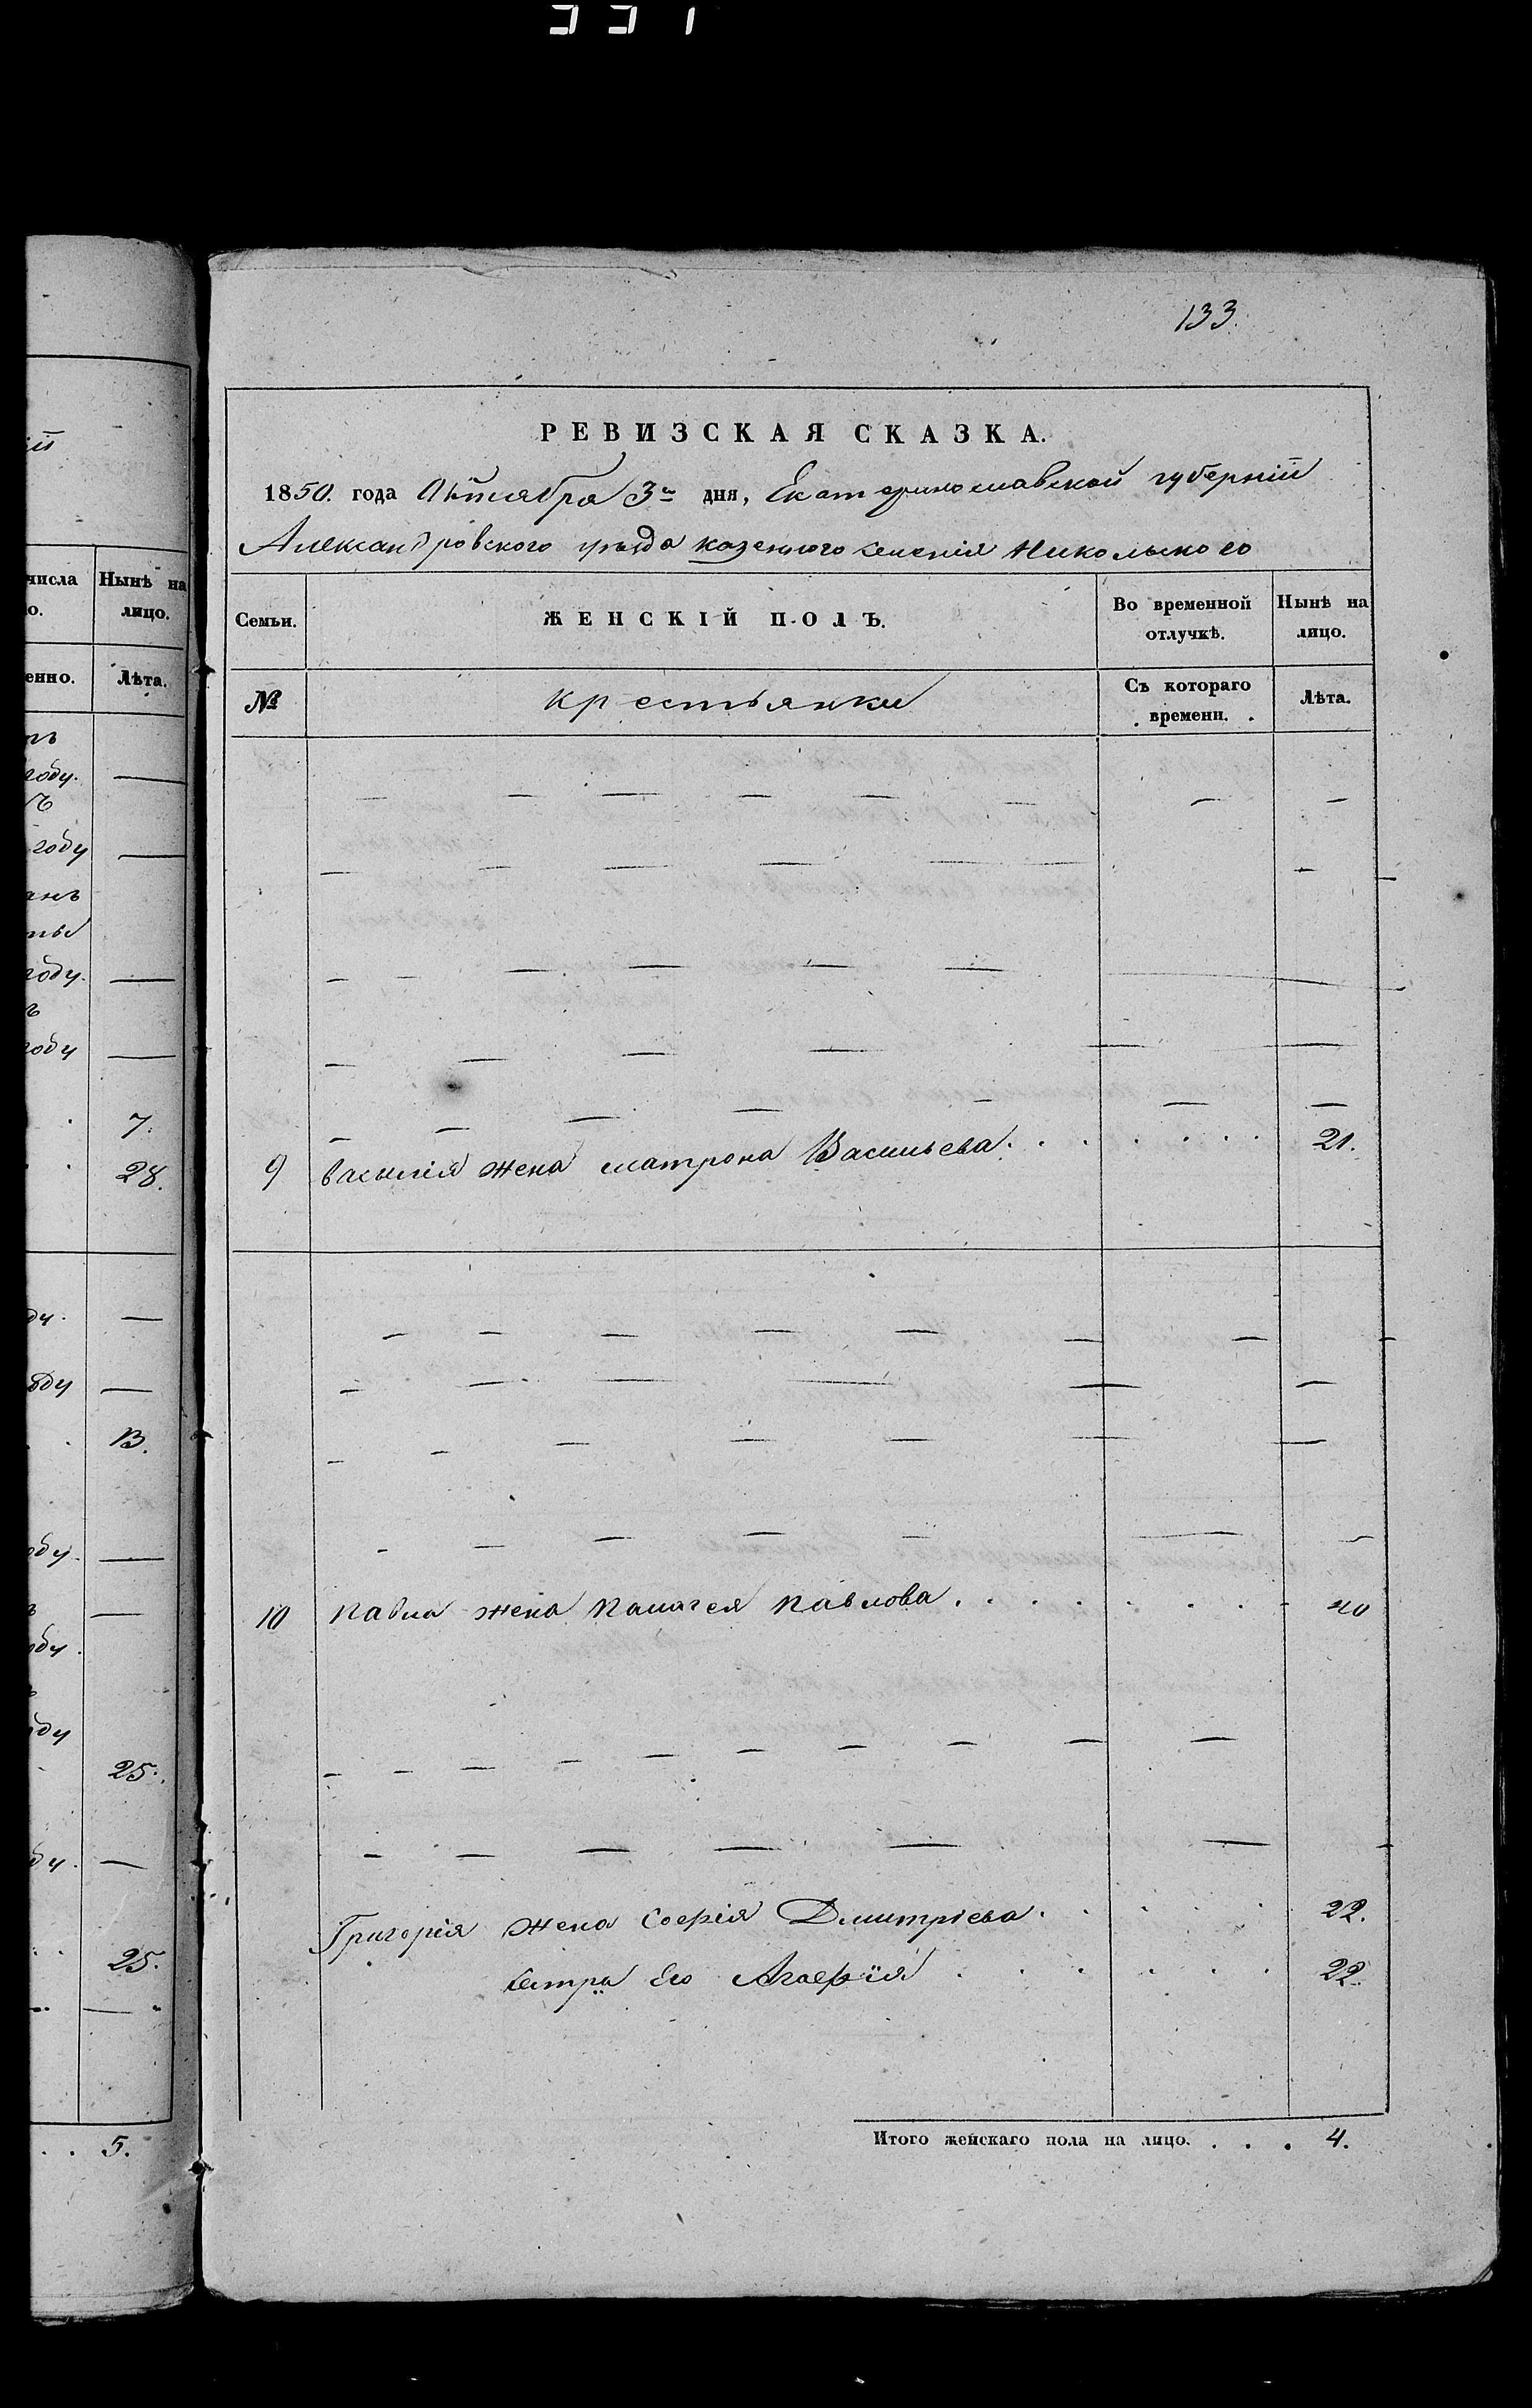 133.
РЕВИЗСКАЯ СКАЗКА.
1850. года Октября 3го дня, Екатеринославской губерніи
Александровского уѣзда казенного селенія Никольского
Семьи. ЖЕНСКІЙ ПОЛЪ. Во временной отлучкѣ. Нынѣ на лицо.
№ крестьянки Съ котораго времени. Лѣта.
9 Василія жена Матрона Васильева. 21.
10 Павла жена Палагея Павлова. 40
Григорія жена Софія Дмитріева. 22.
сестра его Агафія 22.
Итого женскаго пола на лицо. 4.
числа Нынѣ на
о. лицо.
енно. Лѣта.
году.
году
анъ
году.
году
7.
28.
ду.
оду
13.
оду.
оду.
оду
25.
ду.
25.
5.